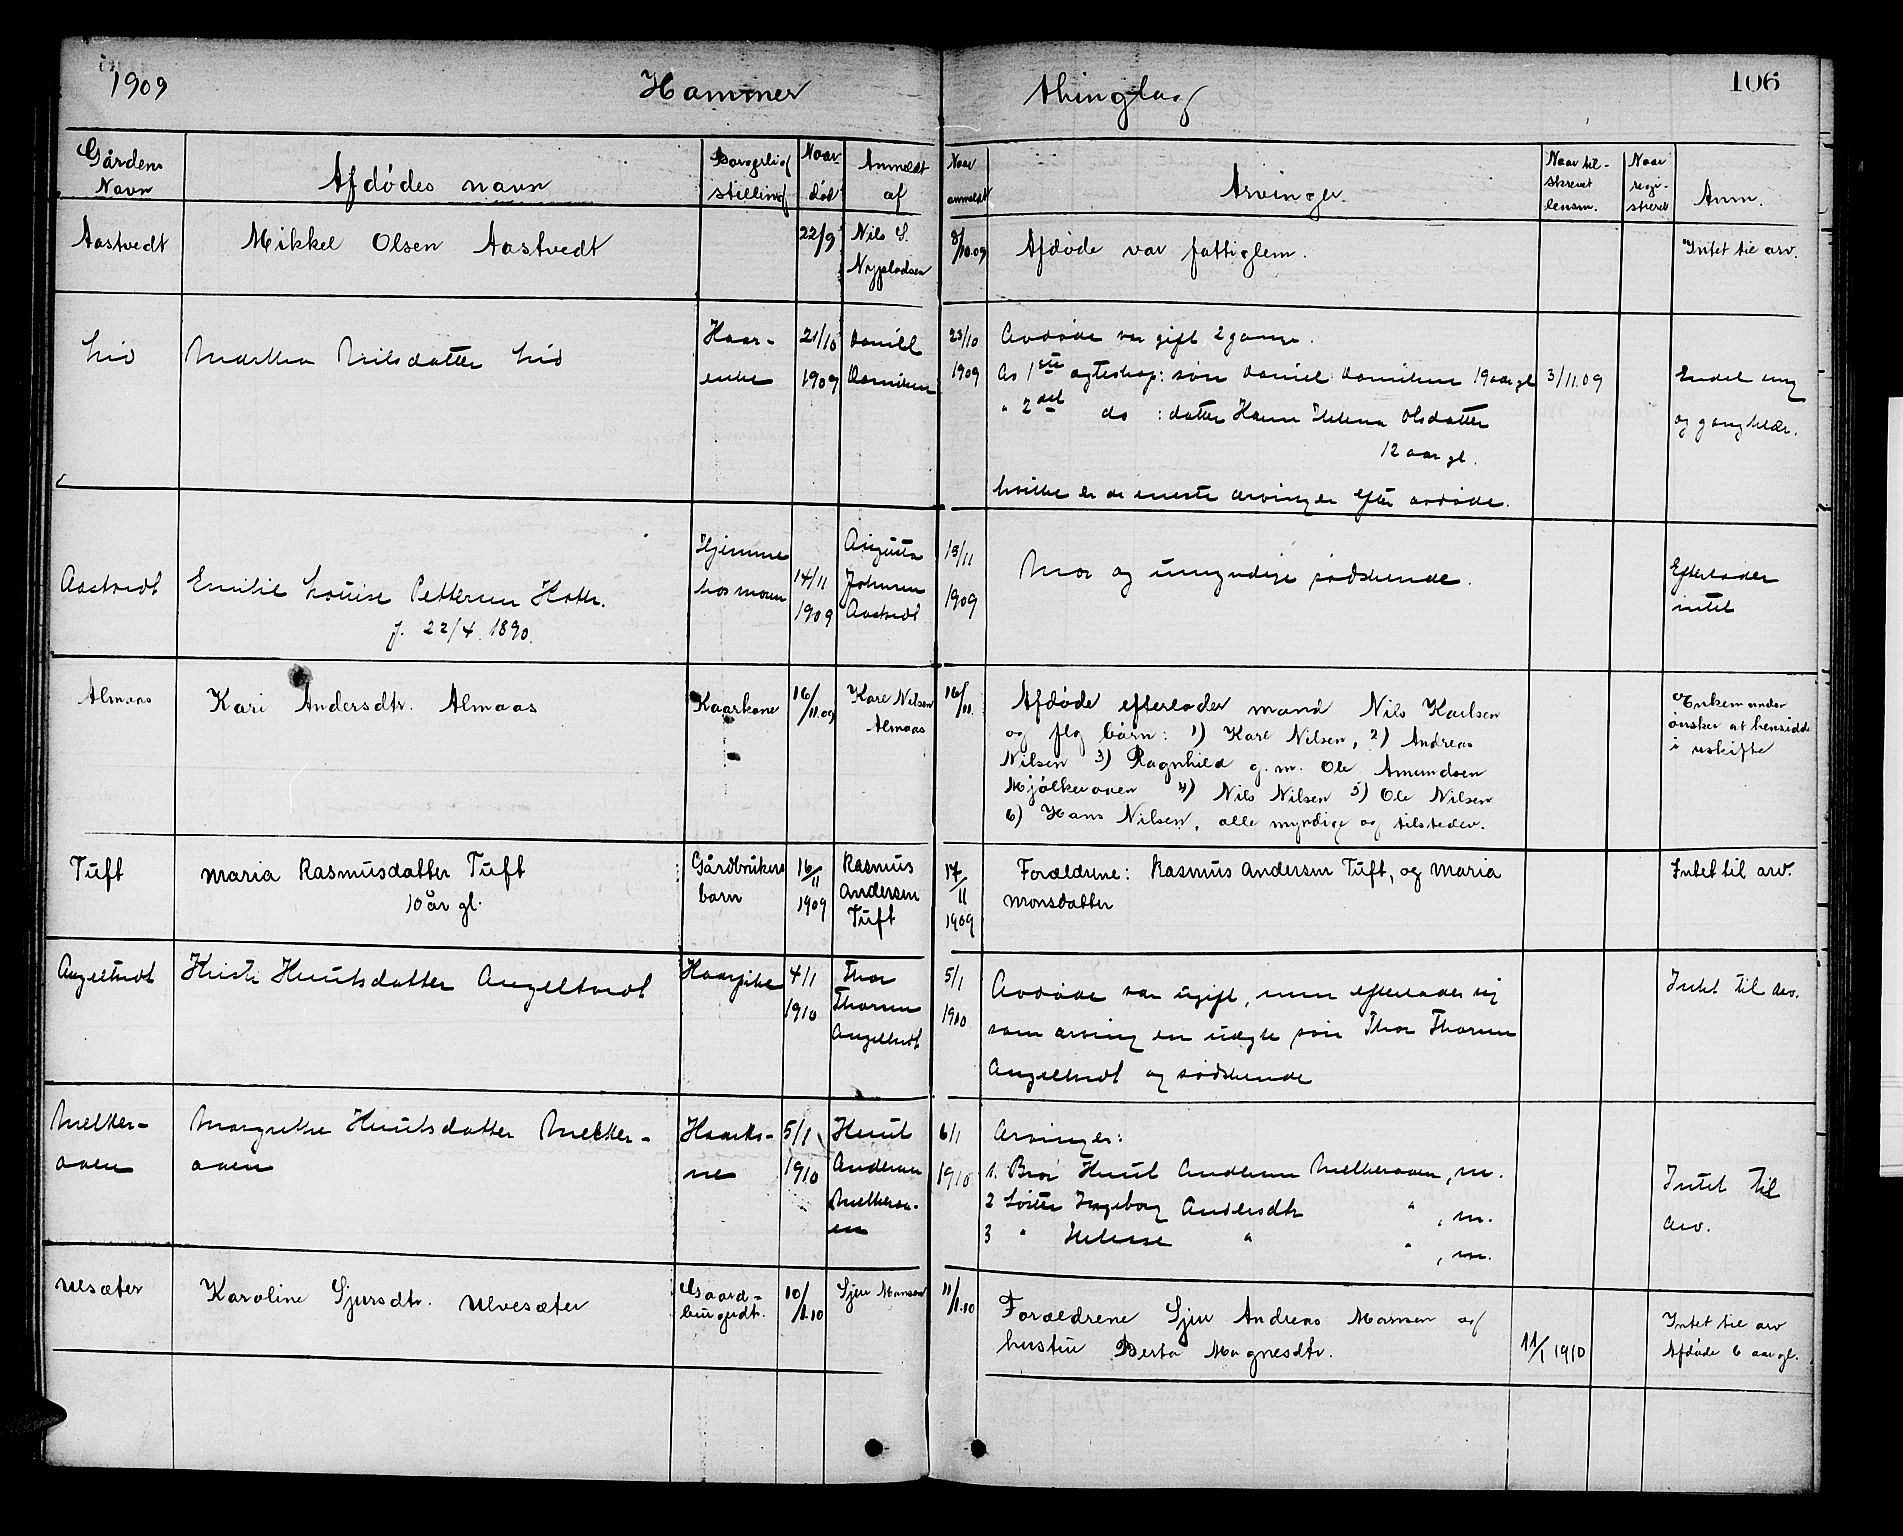 1909 Hammer thinglag 106
Gårdens Navn
Afdødes navn
Borgerlig stilling
Naar død
Anmeldt af
Naar anmeldt
Arvinger.
Naar tilskrevet lensm.
Naar registreret
Anm.
Aastvedt
Mikkel Olsen Aastvedt
22/9
Nils S.
8/10.09
Afdøde var fattiglem.
Intet til arv.
Lid
Martha Nilsdatter Lid
Haar-
enke
21/10
1909
Daniel
Danielsen
23/10
1909
Avdøde var gift 2 gange.
Av 1ste egteskap: søn Daniel Danielsen 19 aar gl
" 2det do : datter Hanna Helena Olsdatter
12 aar gl.
hvilke er de eneste arvinger efter avdøde.
3/11.09
Endel
og gangklær.
Aastvedt
Emilie Louise Pettersen
f. 22/4 1890.
Hjemme
hos moren
14/11
1909
Augusta
Johnsen
Aastvedt
1909
Mor og umyndige sødskende.
Efterlader
intet
Almaas
Kari Andersdtr. Almaas
Kaarkone
16/11.09
Karl Nilsen
Almaas
16/11.
Afdøde efterlader mand Nils Karlsen
og flg børn: 1) Karl Nilsen, 2) Andreas
Nilsen 3) Ragnhild g.m. Ole Amundsen
Mjølkeraaen 4) Nils Nilsen 5) Ole Nilsen
6) Hans Nilsen, alle myndige og tilstede.
Enkemanden
ønsker at hensidde
i uskifte
Tuft
Maria Rasmusdatter Tuft
10 år gl.
Gårdbrukers
barn
16/11
1909
Rasmus
Andersen
Tuft
17/11
1909
Forældrene: Rasmus Andersen Tuft, og Maria
Monsdatter
Intet til arv.
Angeltvedt
Kristi Knutsdatter Angeltvedt
Haarpike
4/1
1910
Thor
Thorsen
Angeltvedt
5/1
1910
Avdøde var ugift, men efterlader sig
som arving en uægte søn Thor Thorsen
Angeltvedt og sødskende
Intet til arv.
Melker-
aaen
Margrethe Knutsdatter Melker-
aaen
Haarko-
ne
5/1
1910
Knut
Andersen
Melkeraa-
en
6/1
1910
Arvinger:
1. Bror Knut Andersen Melkeraaen, m.
2 Søster Ingeborg Andersdtr " , m.
3 " Helene " " , m.
Intet til
arv.
Ulsæter
Karoline Sjursdtr. Ulvesæter
Gaard-
brugerdt.
10/1.10
Sjur Monsen
11/1.10
Forældrene Sjur Andreas Monsen og
hustru Berta Magnesdtr.
11/1 1910
Intet til arv
Afdøde 6 aar gl.